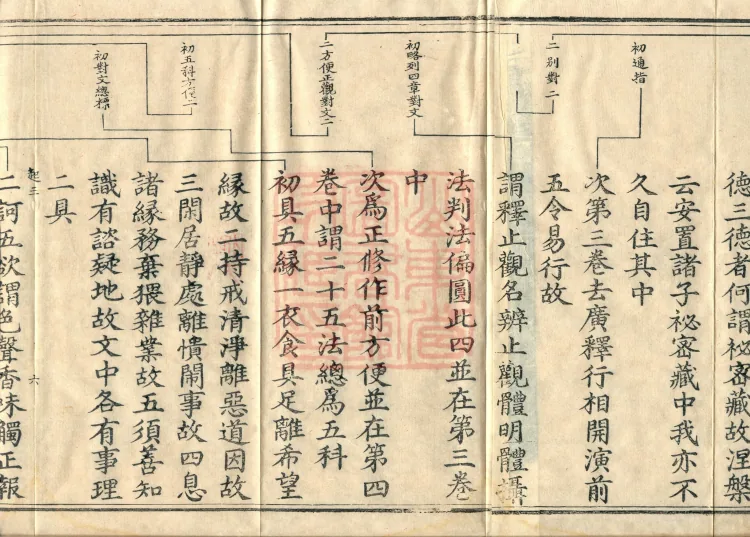 初通指
二別對二
初略列四章對文
二方便正觀對文二
初五科方便二
初對文總標
德三德者何謂祕密藏故涅槃
云安置諸子祕密藏中我亦不
久自住其中
次第三卷去廣釋行相開演前
五令易行故
謂釋止觀名辨止觀體明體攝
法判法偏圓此四並在第三卷
中
次爲正修作前方便並在第四
卷中謂二十五法總爲五科
初具五緣一衣食具足離希望
緣故二持戒清淨離惡道因故
三閑居靜處離憒鬧事故四息
諸緣務棄猥雜業故五須善知
識有諮疑地故文中各有事理
二具
起三
六
二訶五欲謂色聲香味觸正報